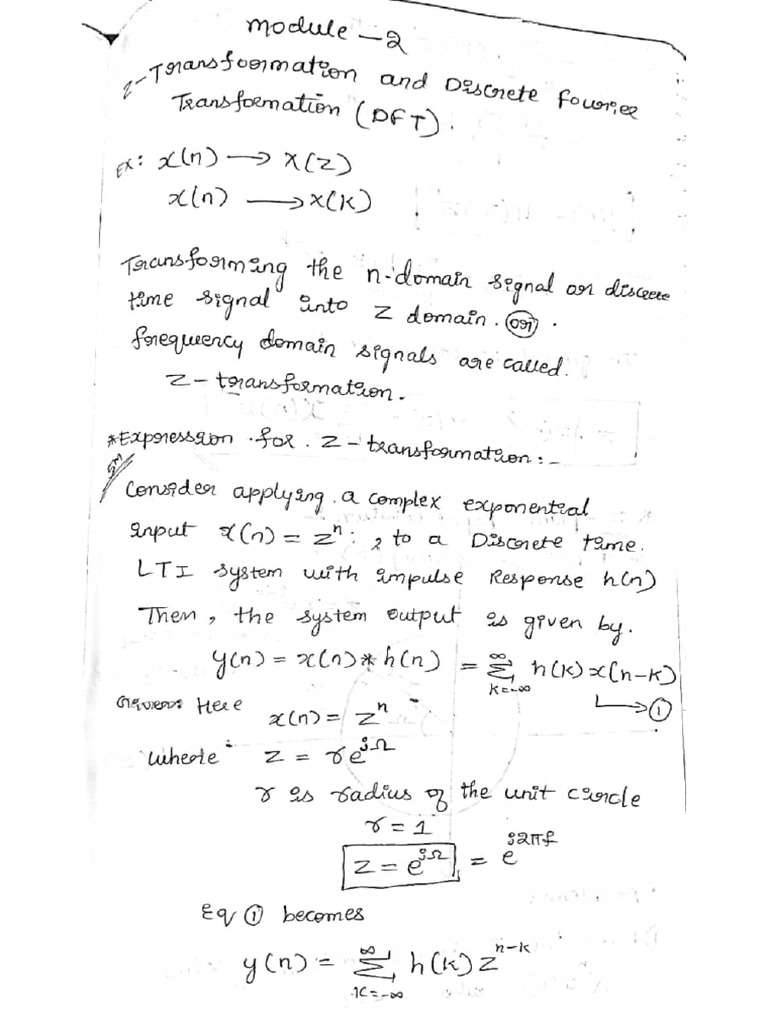 Module-2
Z-Transformation and Discrete Fourier
Transformation (DFT).
Ex: x(n) → X(Z)
x(n) → X(K)
Transforming the n-domain signal or discrete
time signal into Z domain. (or).
frequency domain signals are called.
Z-transformation.
*Expression for Z-transformation:-
Consider applying a complex exponential
input x(n) = zⁿ:, to a Discrete time.
LTI system with impulse Response h(n)
Then, the system output is given by.
y(n) = x(n)*h(n) = ∑_{k=-∞}^{∞} h(k)x(n-k)
→①
Here x(n) = zⁿ.
where z = re^{jΩ}
r is radius of the unit circle
r = 1
z = e^{jΩ} = e^{j2πf}
Eq ① becomes
y(n) = ∑_{k=-∞}^{∞} h(k) z^{n-k}